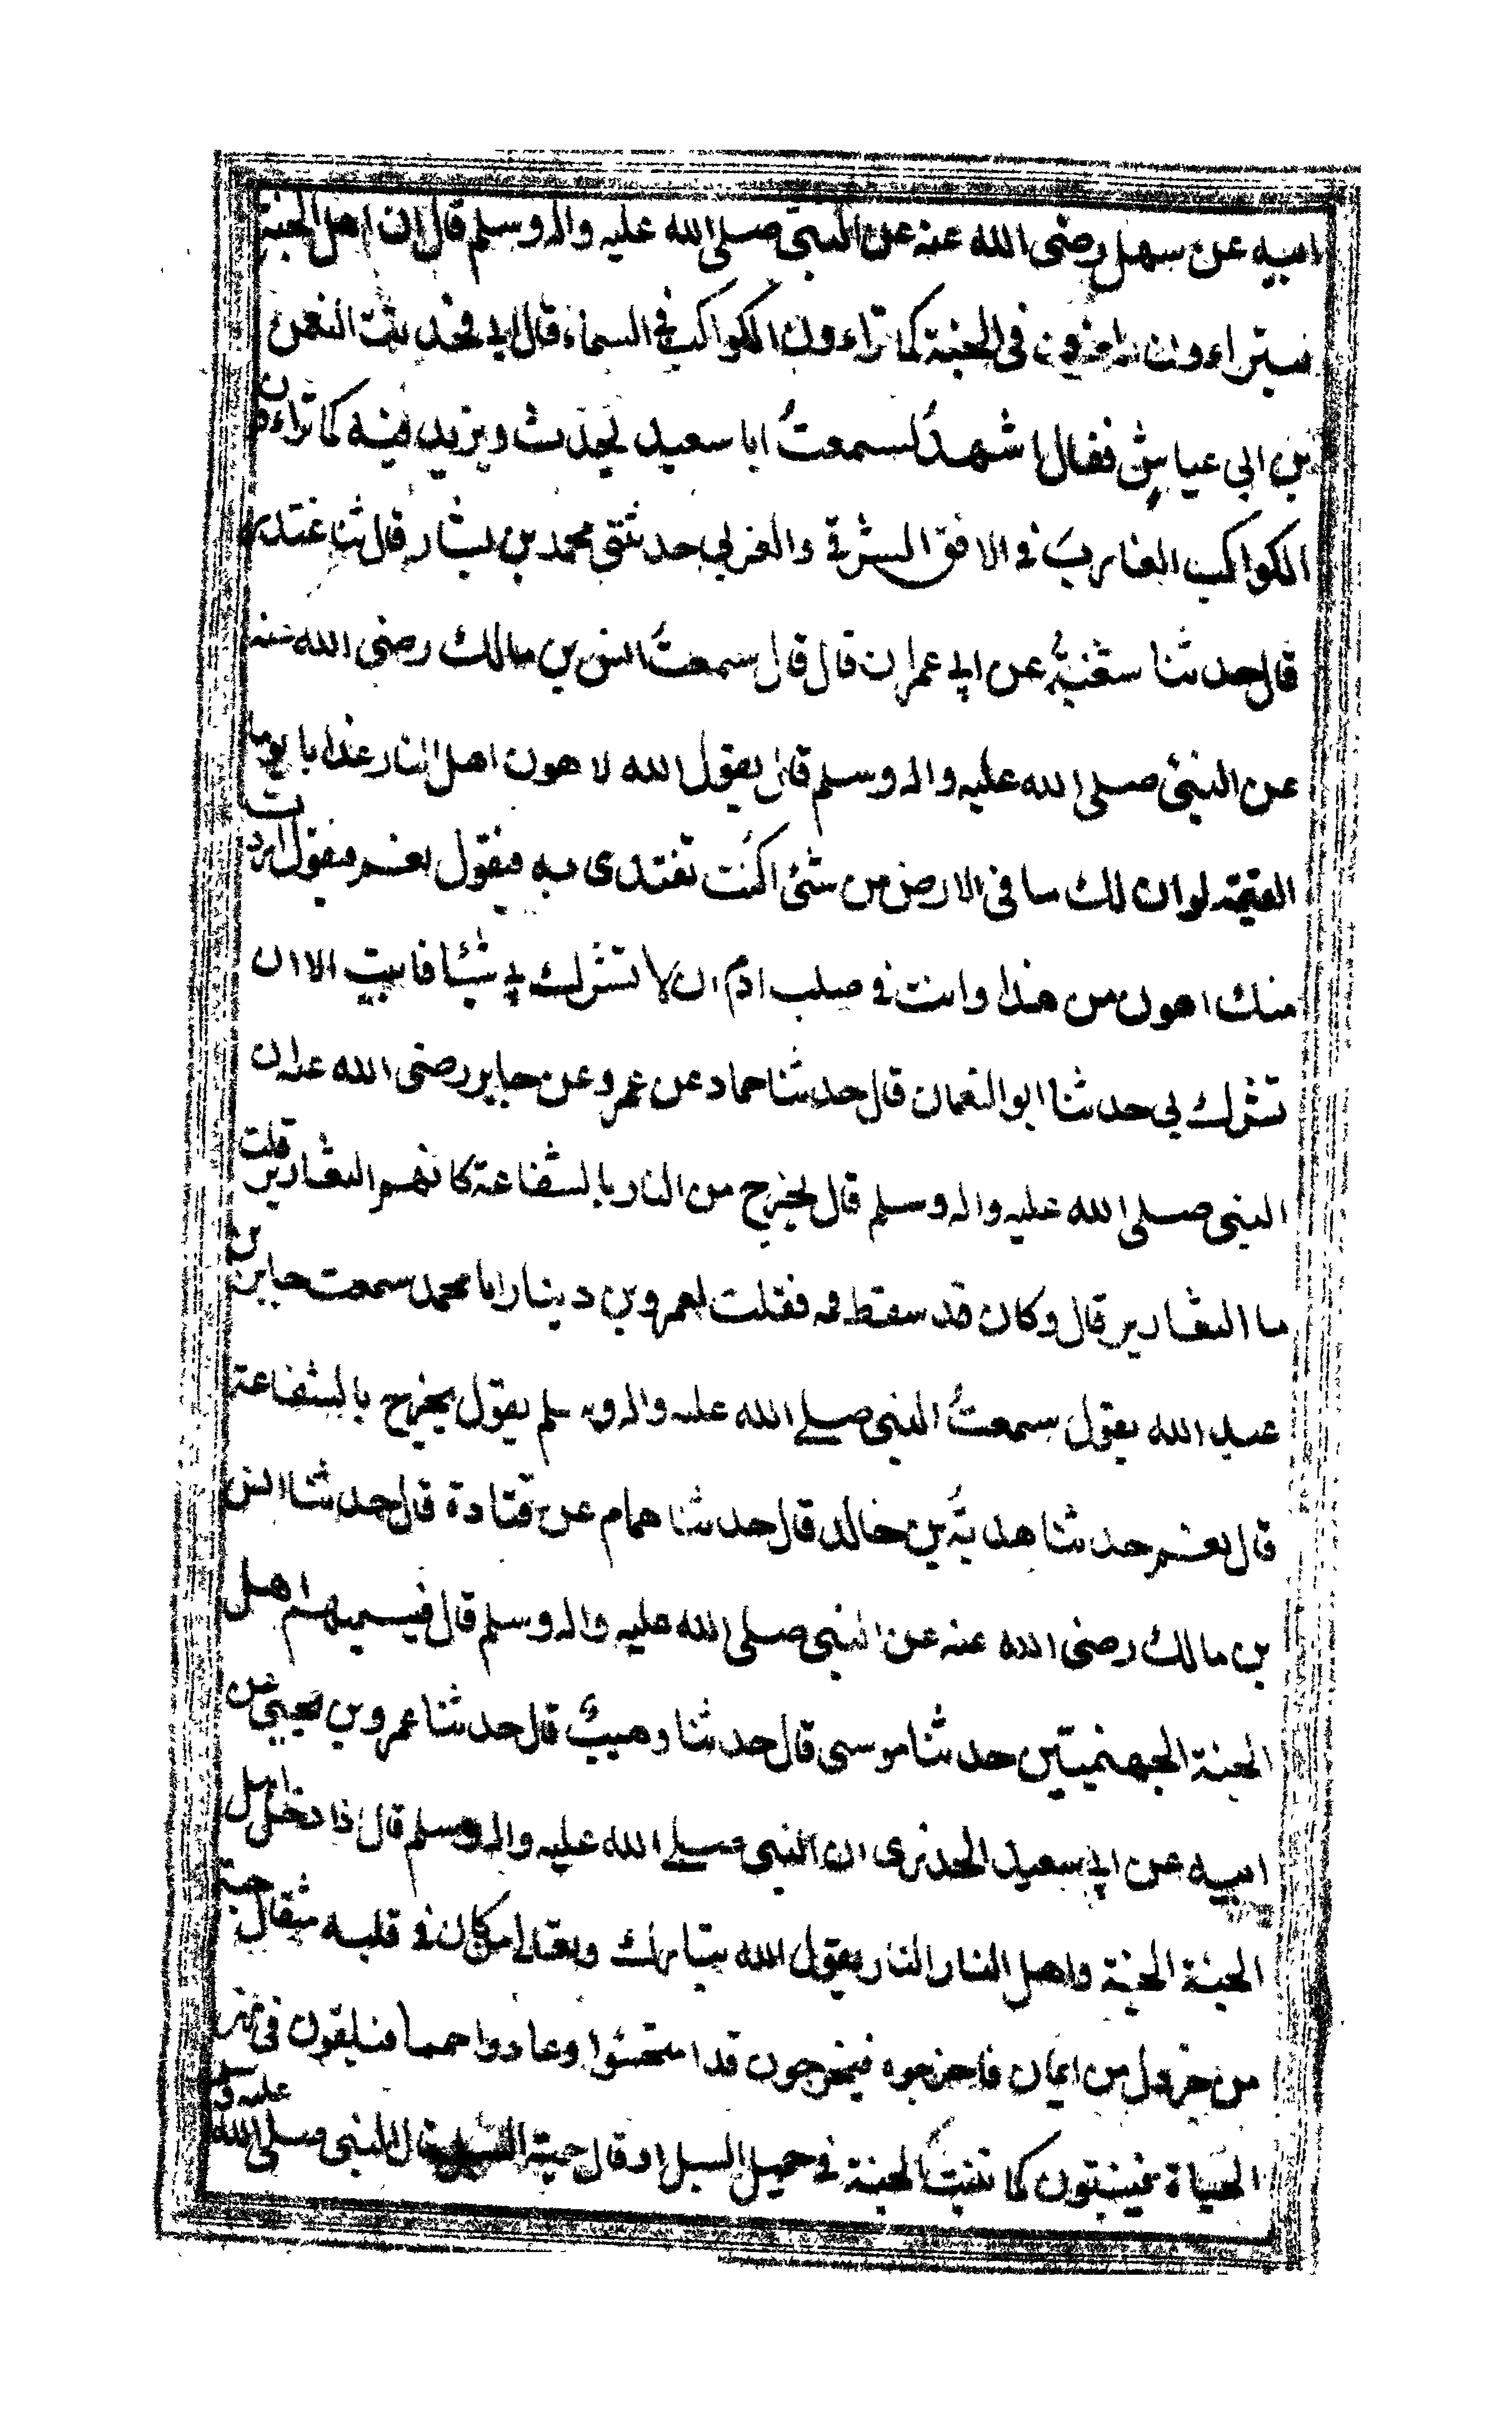 ابيه عن سهل رضى الله عنه عن النبى صلى الله عليه واله وسلم قال ان اهل الجنة
ليتراءون الغرف فى الجنة كما تراءون الكواكب فى السماء قال ابى فحدثت النعمن
بن ابى عياش فقال اشهدُ لسمعتُ ابا سعيد يحدث ويزيد فيه كما تراءون
الكواكب الغارب فى الافق الشرقى والغربى حدثنى محمد بن بشار قال ثنا غندر
قال حدثنا شعبة عن ابى عمران قال قال سمعتُ انس بن مالك رضى الله عنه
عن النبى صلى الله عليه واله وسلم قال يقول الله لاهون اهل النار عذابا يوما
القيمة لو ان لك ما فى الارض من شئ اكنت تفتدى به فيقول نعم فيقول اردت
منك اهون من هذا وانت فى صلب ادم ان لا تشرك بى شيئا فابيت الا ان
تشرك بى حدثنا ابو النعمان قال حدثنا حماد عن عمرو عن جابر رضى الله عنه ان
النبى صلى الله عليه واله وسلم قال يخرج من النار بالشفاعة كانهم الثغارير قلت
ما الثغارير قال وكان قد سقط فمه فقلت لعمرو بن دينار ابا محمد سمعت جابر بن
عبد الله يقول سمعتُ النبى صلى الله عليه واله وسلم يقول يخرج بالشفاعة
قال نعم حدثنا هدبةُ بن خالد قال حدثنا همام عن قتادة قال حدثنا انس
بن مالك رضى الله عنه عن النبى صلى الله عليه واله وسلم قال فيسميهم اهل
الجنة الجهنميين حدثنا موسى قال حدثنا وهيبٌ قال حدثنا عمرو بن يحيى عن
ابيه عن ابى سعيد الخدرى ان النبى صلى الله عليه واله وسلم قال اذا دخل اهل
الجنة الجنة واهل النار النار يقول الله تبارك وتعالى من كان فى قلبه مثقال حبة
من خردل من ايمان فاخرجوه فيخرجون قد امتحشوا وعادوا حمما فيلقون فى نهر
الحياة فينبتون كما تنبت الحبة فى حميل السيل او قال حمية السيل وقال النبى صلى الله عليه و